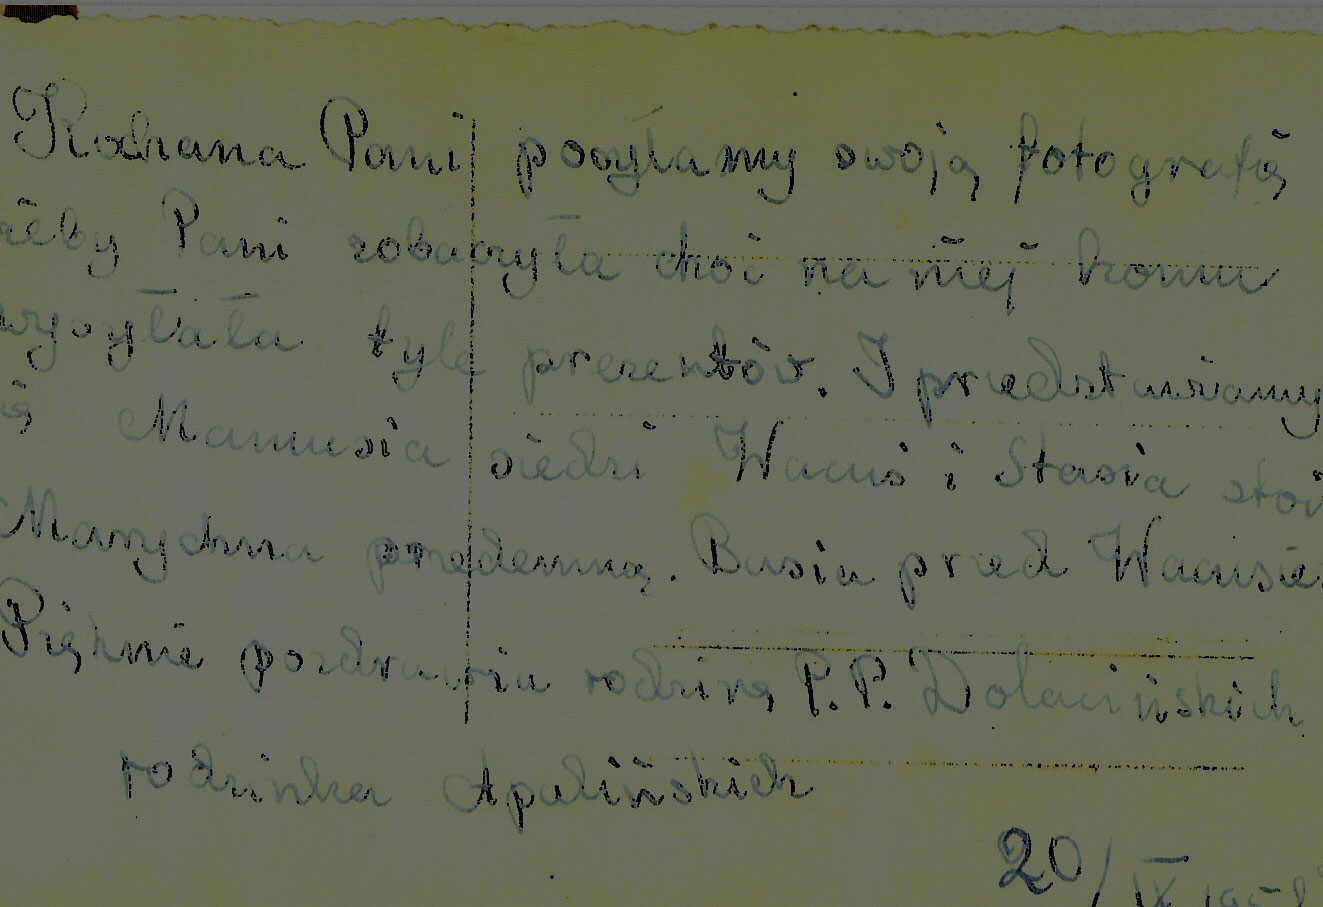 Kochana Pani posyłamy swoją fotografią
żeby Pani zobaczyła choć na niej komu
wysyłała tyle prezentów. I przedstawiamy
się Mamusia siedzi Wacuś i Stasia stoi
Marychna przedemną. Busia przed Wacusiem
Pięknie pozdrawia rodzinę P.P. Dolacińskich
rodzinka Apulińskich
20/IX